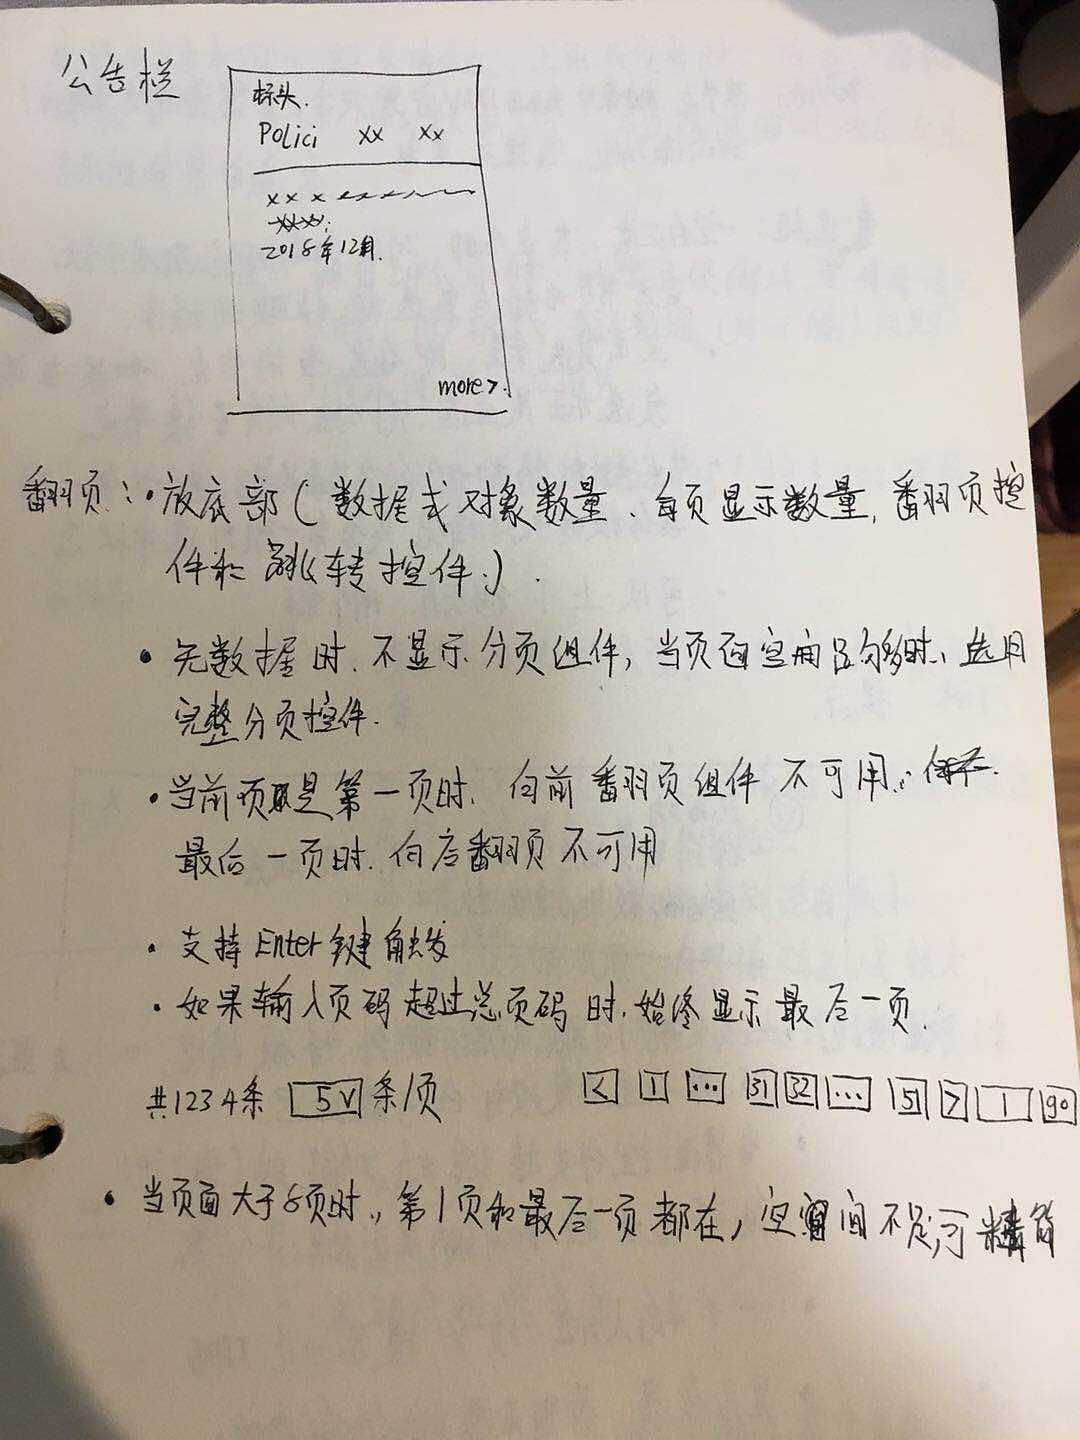 公告栏
标头.
Polici xx xx
x x x
2018年12月.
more>.
翻页:·放底部(数据或对象数量、每页显示数量,翻页控
件和 跳转控件.).
• 无数据时.不显示分页组件,当页面空间足够多时、选用
完整分页控件.
• 当前页是第一页时.向前翻页组件不可用.
最后一页时.向后翻页不可用
• 支持Enter键触发
• 如果输入页码超过总页码时.始终显示最后一页.
共1234条 5∨ 条/页 < 1 ... 31 32 ... 51 > 1 go
• 当页面大于8页时.,第1页和最后一页都在,空间不足,可精简